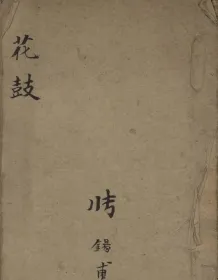 花鼓
錫甫